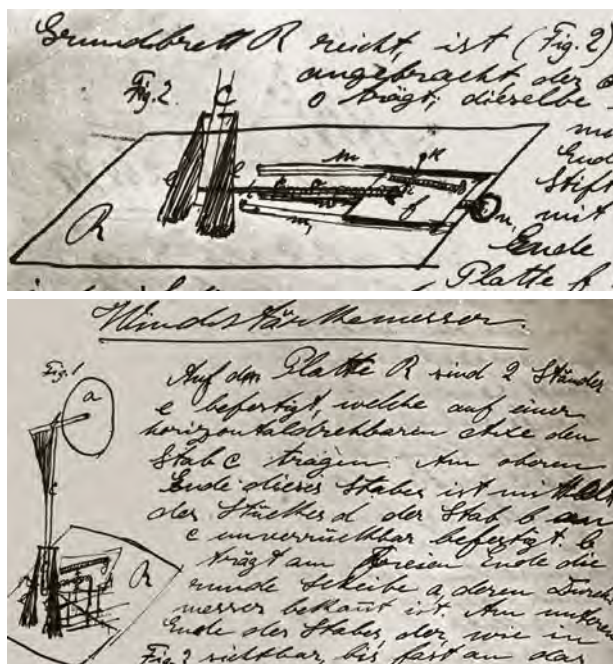 Grundsbrett R reicht, ist (Fig. 2)
angebracht der
Fig. 2.
o trägt; dieselbe
C
Ende
Stift
mit
Ende
Platte f
e
l
m
K
f
m,
n,
R
Windstärkemesser.
Fig. 1
Auf der Platte R sind 2 Ständer
e befestigt, welche auf einer
horizontaldrehbaren Axe den
Stab c tragen. Am oberen
Ende dieses Stabes ist mittels
des Stückes d der Stab b an
c unverrückbar befestigt. b
trägt am freien Ende die
runde Scheibe a, deren Durch
messer bekannt ist. Am unteren
Ende des Stabes, der, wie in
Fig. 2 sichtbar, bis fast an das
a
c
R